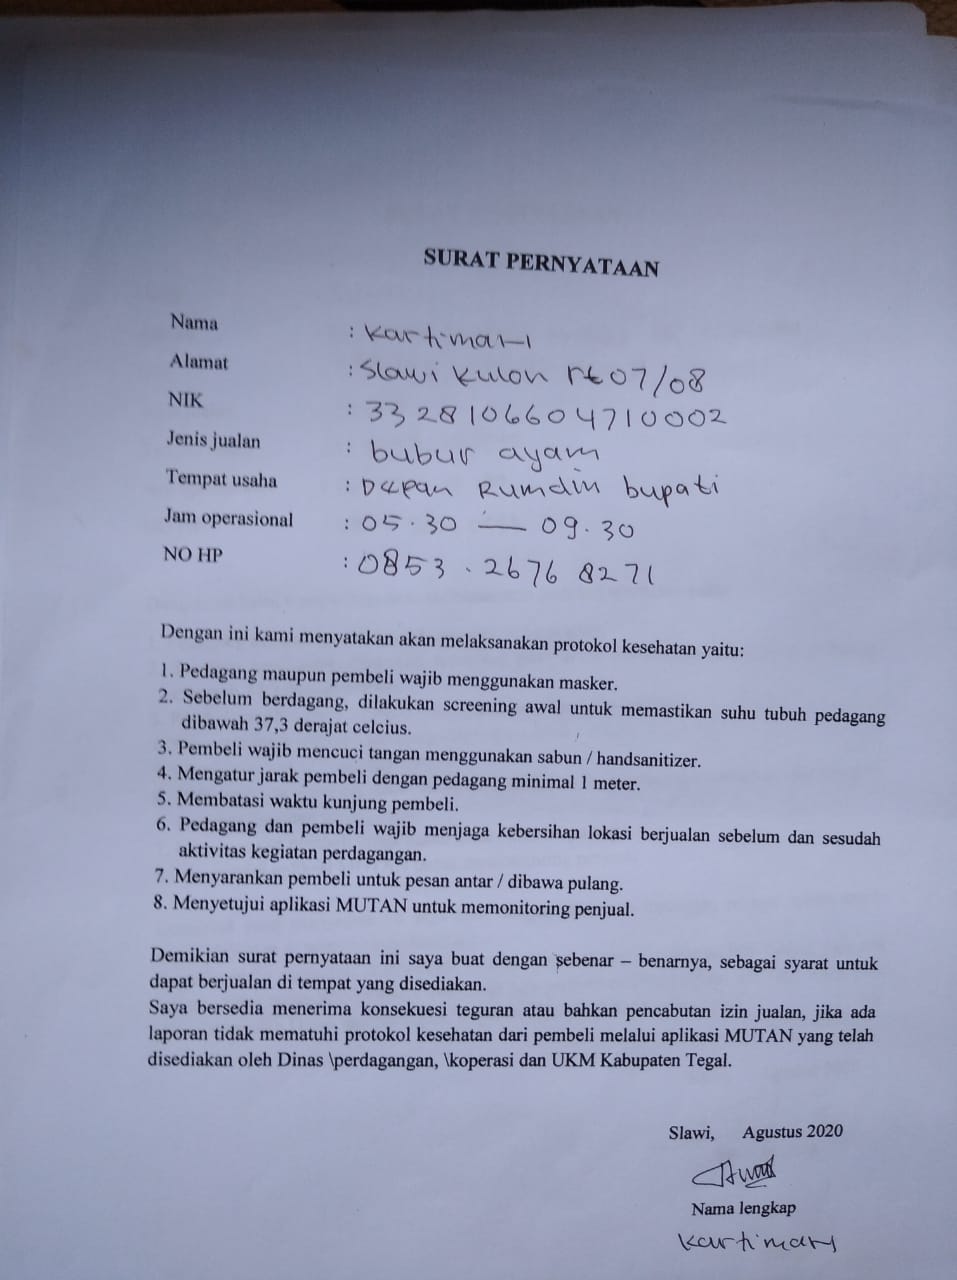 SURAT PERNYATAAN
Nama : Kartimah
Alamat : Slawi Kulon rt 07/08
NIK : 3328106604710002
Jenis jualan : bubur ayam
Tempat usaha : Depan Rumdin bupati
Jam operasional : 05.30 — 09.30
NO HP : 0853.2676 8271
Dengan ini kami menyatakan akan melaksanakan protokol kesehatan yaitu:
1. Pedagang maupun pembeli wajib menggunakan masker.
2. Sebelum berdagang, dilakukan screening awal untuk memastikan suhu tubuh pedagang
dibawah 37,3 derajat celcius.
3. Pembeli wajib mencuci tangan menggunakan sabun / handsanitizer.
4. Mengatur jarak pembeli dengan pedagang minimal 1 meter.
5. Membatasi waktu kunjung pembeli.
6. Pedagang dan pembeli wajib menjaga kebersihan lokasi berjualan sebelum dan sesudah
aktivitas kegiatan perdagangan.
7. Menyarankan pembeli untuk pesan antar / dibawa pulang.
8. Menyetujui aplikasi MUTAN untuk memonitoring penjual.
Demikian surat pernyataan ini saya buat dengan sebenar – benarnya, sebagai syarat untuk
dapat berjualan di tempat yang disediakan.
Saya bersedia menerima konsekuesi teguran atau bahkan pencabutan izin jualan, jika ada
laporan tidak mematuhi protokol kesehatan dari pembeli melalui aplikasi MUTAN yang telah
disediakan oleh Dinas \perdagangan, \koperasi dan UKM Kabupaten Tegal.
Slawi, Agustus 2020
Nama lengkap
Kartimah